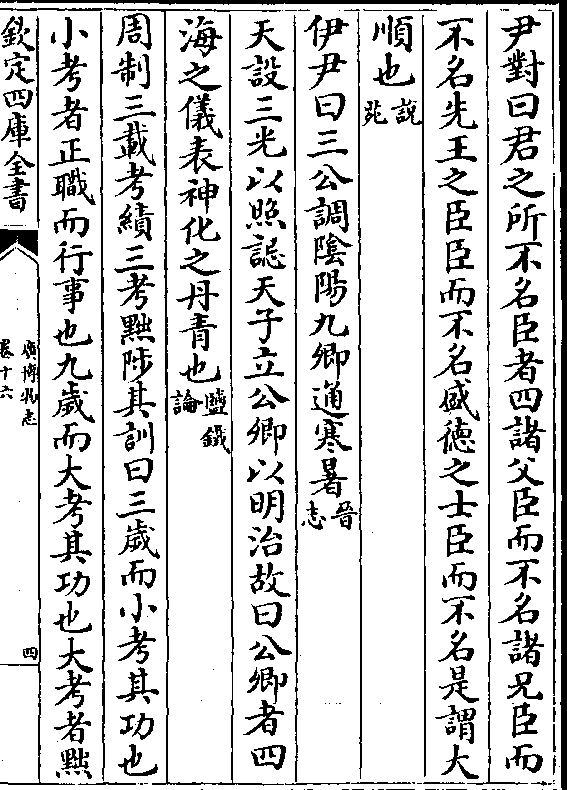 尹對曰君之所不名臣者四諸父臣而不名諸兄臣而
不名先王之臣臣而不名盛德之士臣而不名是謂大
順也說苑
伊尹曰三公調陰陽九卿通寒暑晉志
天設三光以照誋天子立公卿以明治故曰公卿者四
海之儀表神化之丹青也鹽鐵論
周制三載考績三考黜陟其訓曰三歲而小考其功也
小考者正職而行事也九歲而大考其功也大考者黜
欽定四庫全書
廣博物志
卷十六
四